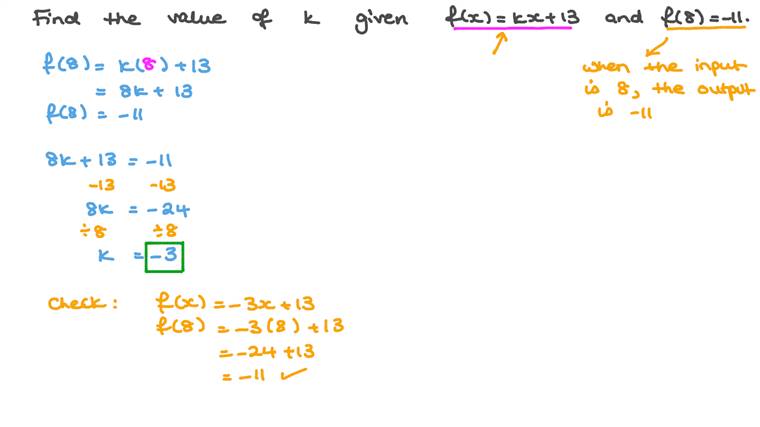 Find the value of k given f(x) = kx + 13 and f(8) = -11.
when the input
is 8, the output
is -11
f(8) = k(8) + 13
= 8k + 13
f(8) = -11
8k + 13 = -11
-13 -13
8k = -24
÷8 ÷8
k = -3
Check: f(x) = -3x + 13
f(8) = -3(8) + 13
= -24 + 13
= -11 ✓